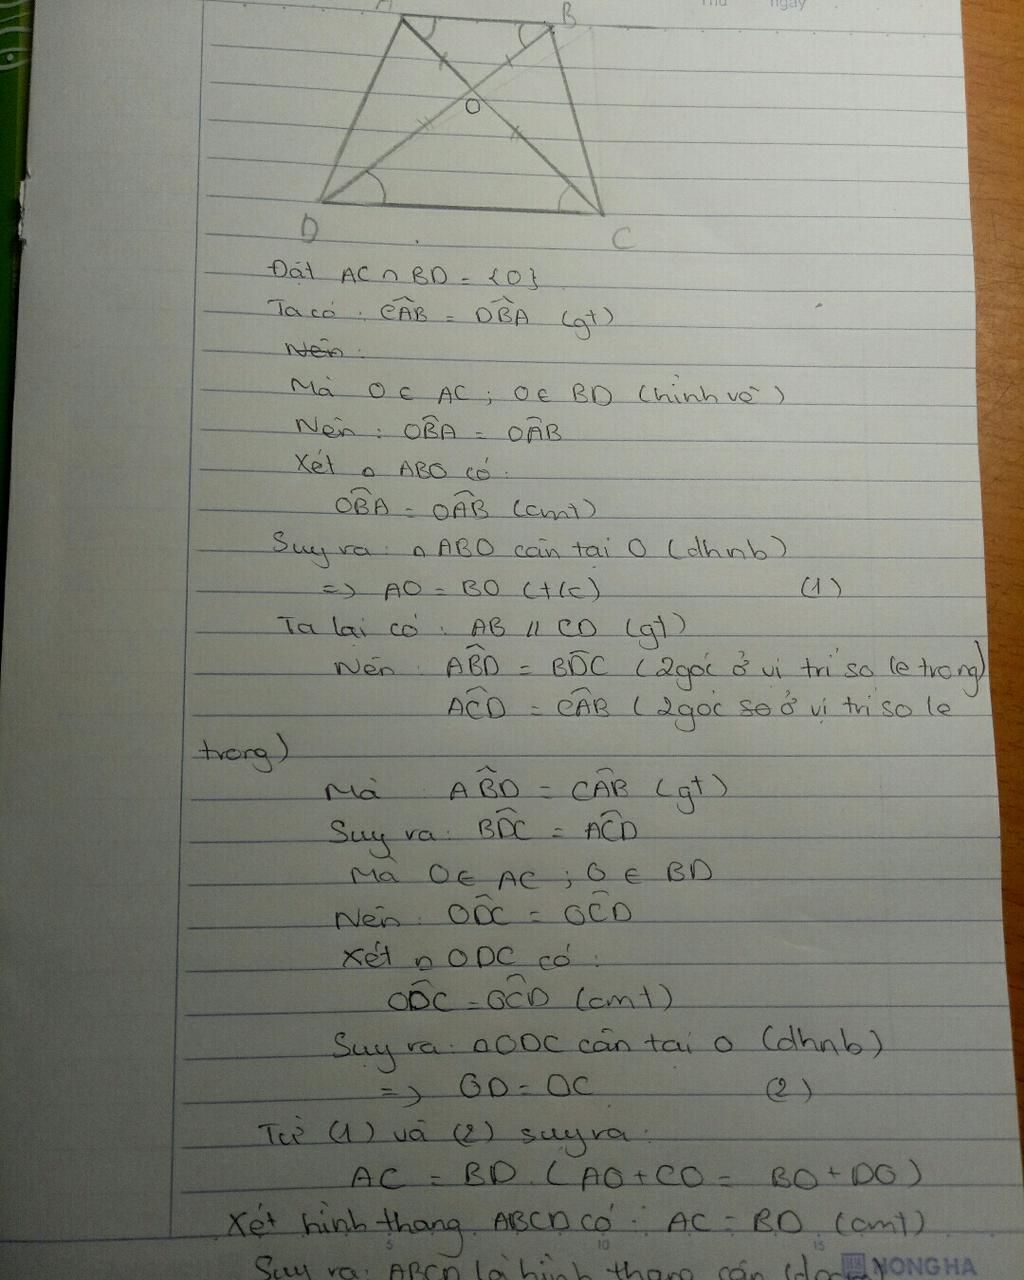 Thứ ngày
A B
O
D C
Đặt AC ∩ BD = {O}
Ta có : CÂB = DB̂A (gt)
Nên :
Mà O ∈ AC ; O ∈ BD (hình vẽ)
Nên : OB̂A = OÂB
Xét △ ABO có :
OB̂A = OÂB (cmt)
Suy ra : △ ABO cân tại O (dhnb)
=> AO = BO (t/c) (1)
Ta lại có : AB // CD (gt)
Nên : AB̂D = BD̂C (2 góc ở vị trí so le trong)
AĈD = CÂB (2 góc so ở vị trí so le
trong)
Mà AB̂D = CÂB (gt)
Suy ra : BD̂C = AĈD
Mà O ∈ AC ; O ∈ BD
Nên : OD̂C = OĈD
Xét △ ODC có :
OD̂C = OĈD (cmt)
Suy ra : △ ODC cân tại O (dhnb)
=> OD = OC (2)
Từ (1) và (2) suy ra :
AC = BD . (AO + CO = BO + DO)
Xét hình thang ABCD có : AC = BD (cmt)
5 10 15
Suy ra : ABCD là hình thang cân
HONG HA